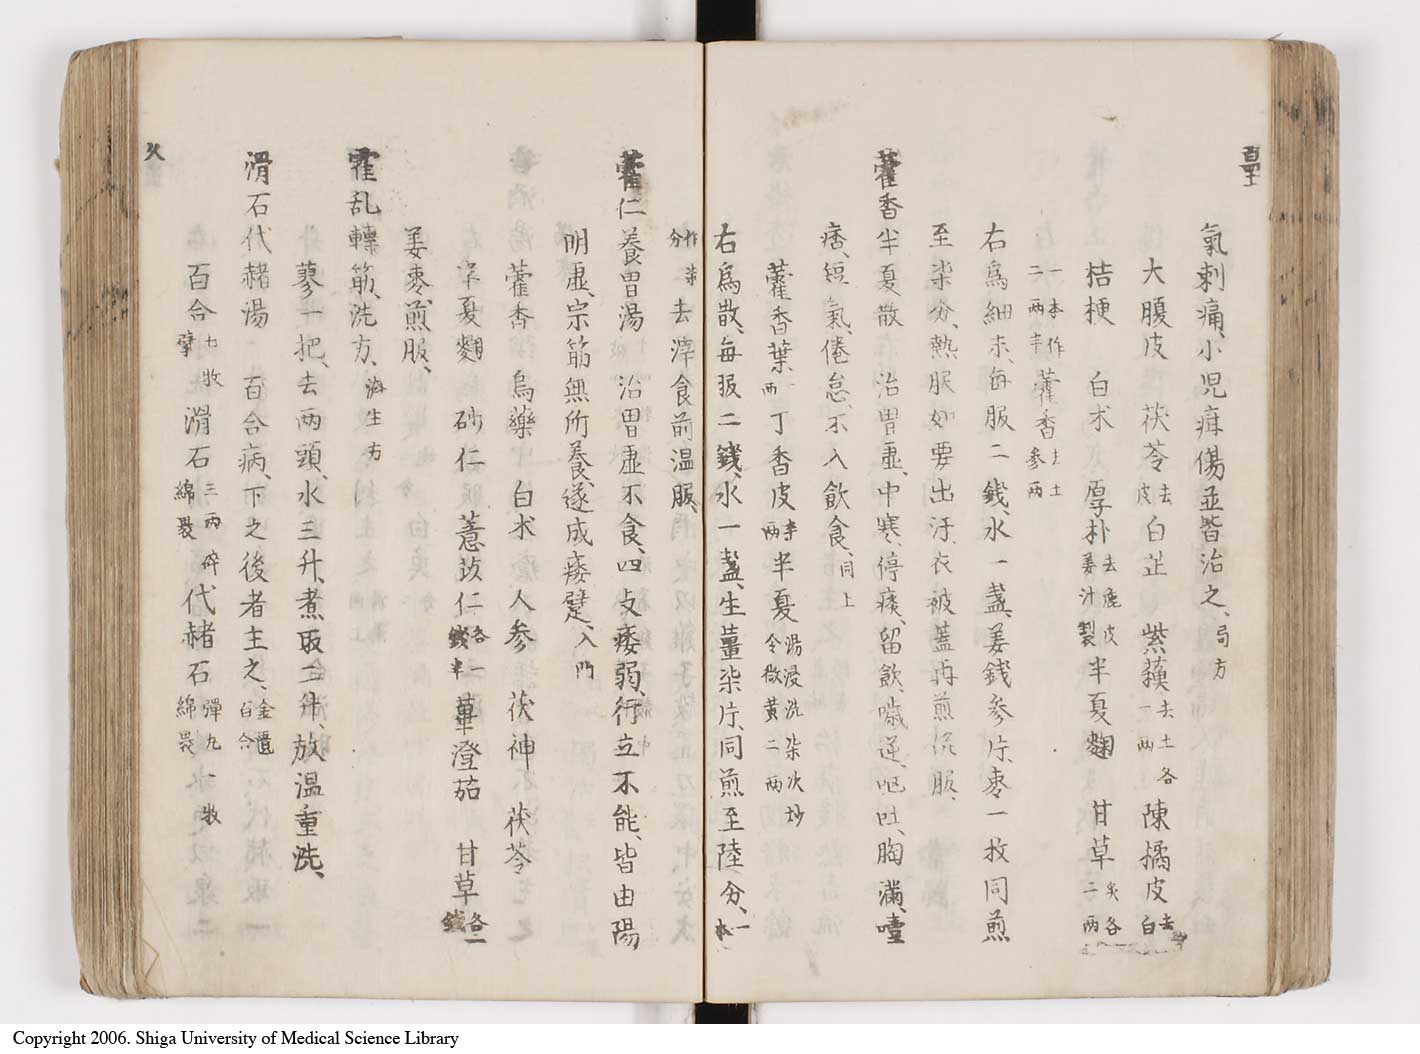 氣刺痛、小児疳傷並皆治之、局方
大腹皮 茯苓去皮 白芷 紫蘓去土各一両 陳橘皮去白
桔梗 白术 厚朴去麁皮姜汁製 半夏麹 甘草炙各二両
一本作二両半 藿香去土参両
右爲細末、毎服二銭、水一盞、姜銭参片、棗一枚同煎
至柒分、熱服如要出汗、衣被蓋再煎併服、
藿香半夏散 治胃虚、中寒、停痰、留飲、噦逆、呕吐、胸滿、噎
痞、短氣、倦怠、不入飲食、同上
藿香葉一両 丁香皮半両 半夏湯浸洗柒次炒令微黄二両
右爲散、毎服二錢、水一盞、生薑柒片、同煎至陸分、一本
作柒分 去滓食前温服、
藿仁養胃湯 治胃虚不食、四支痿弱、行立不能、皆由陽
明虚、宗筋無所養、遂成痿躄、入門
藿香 烏藥 白术 人参 茯神 茯苓
半夏麹 砂仁 薏苡仁各一錢半 蓽澄茄 甘草各二錢
姜棗煎服、
霍乱轉筋洗方、海生方
蓼一把、去两頭、水三升、煮取二升、放温重洗、
滑石代赭湯 百合病、下之後者主之、金匱百合
百合七枚擘 滑石三两碎綿裹 代赭石彈丸一枚綿裹